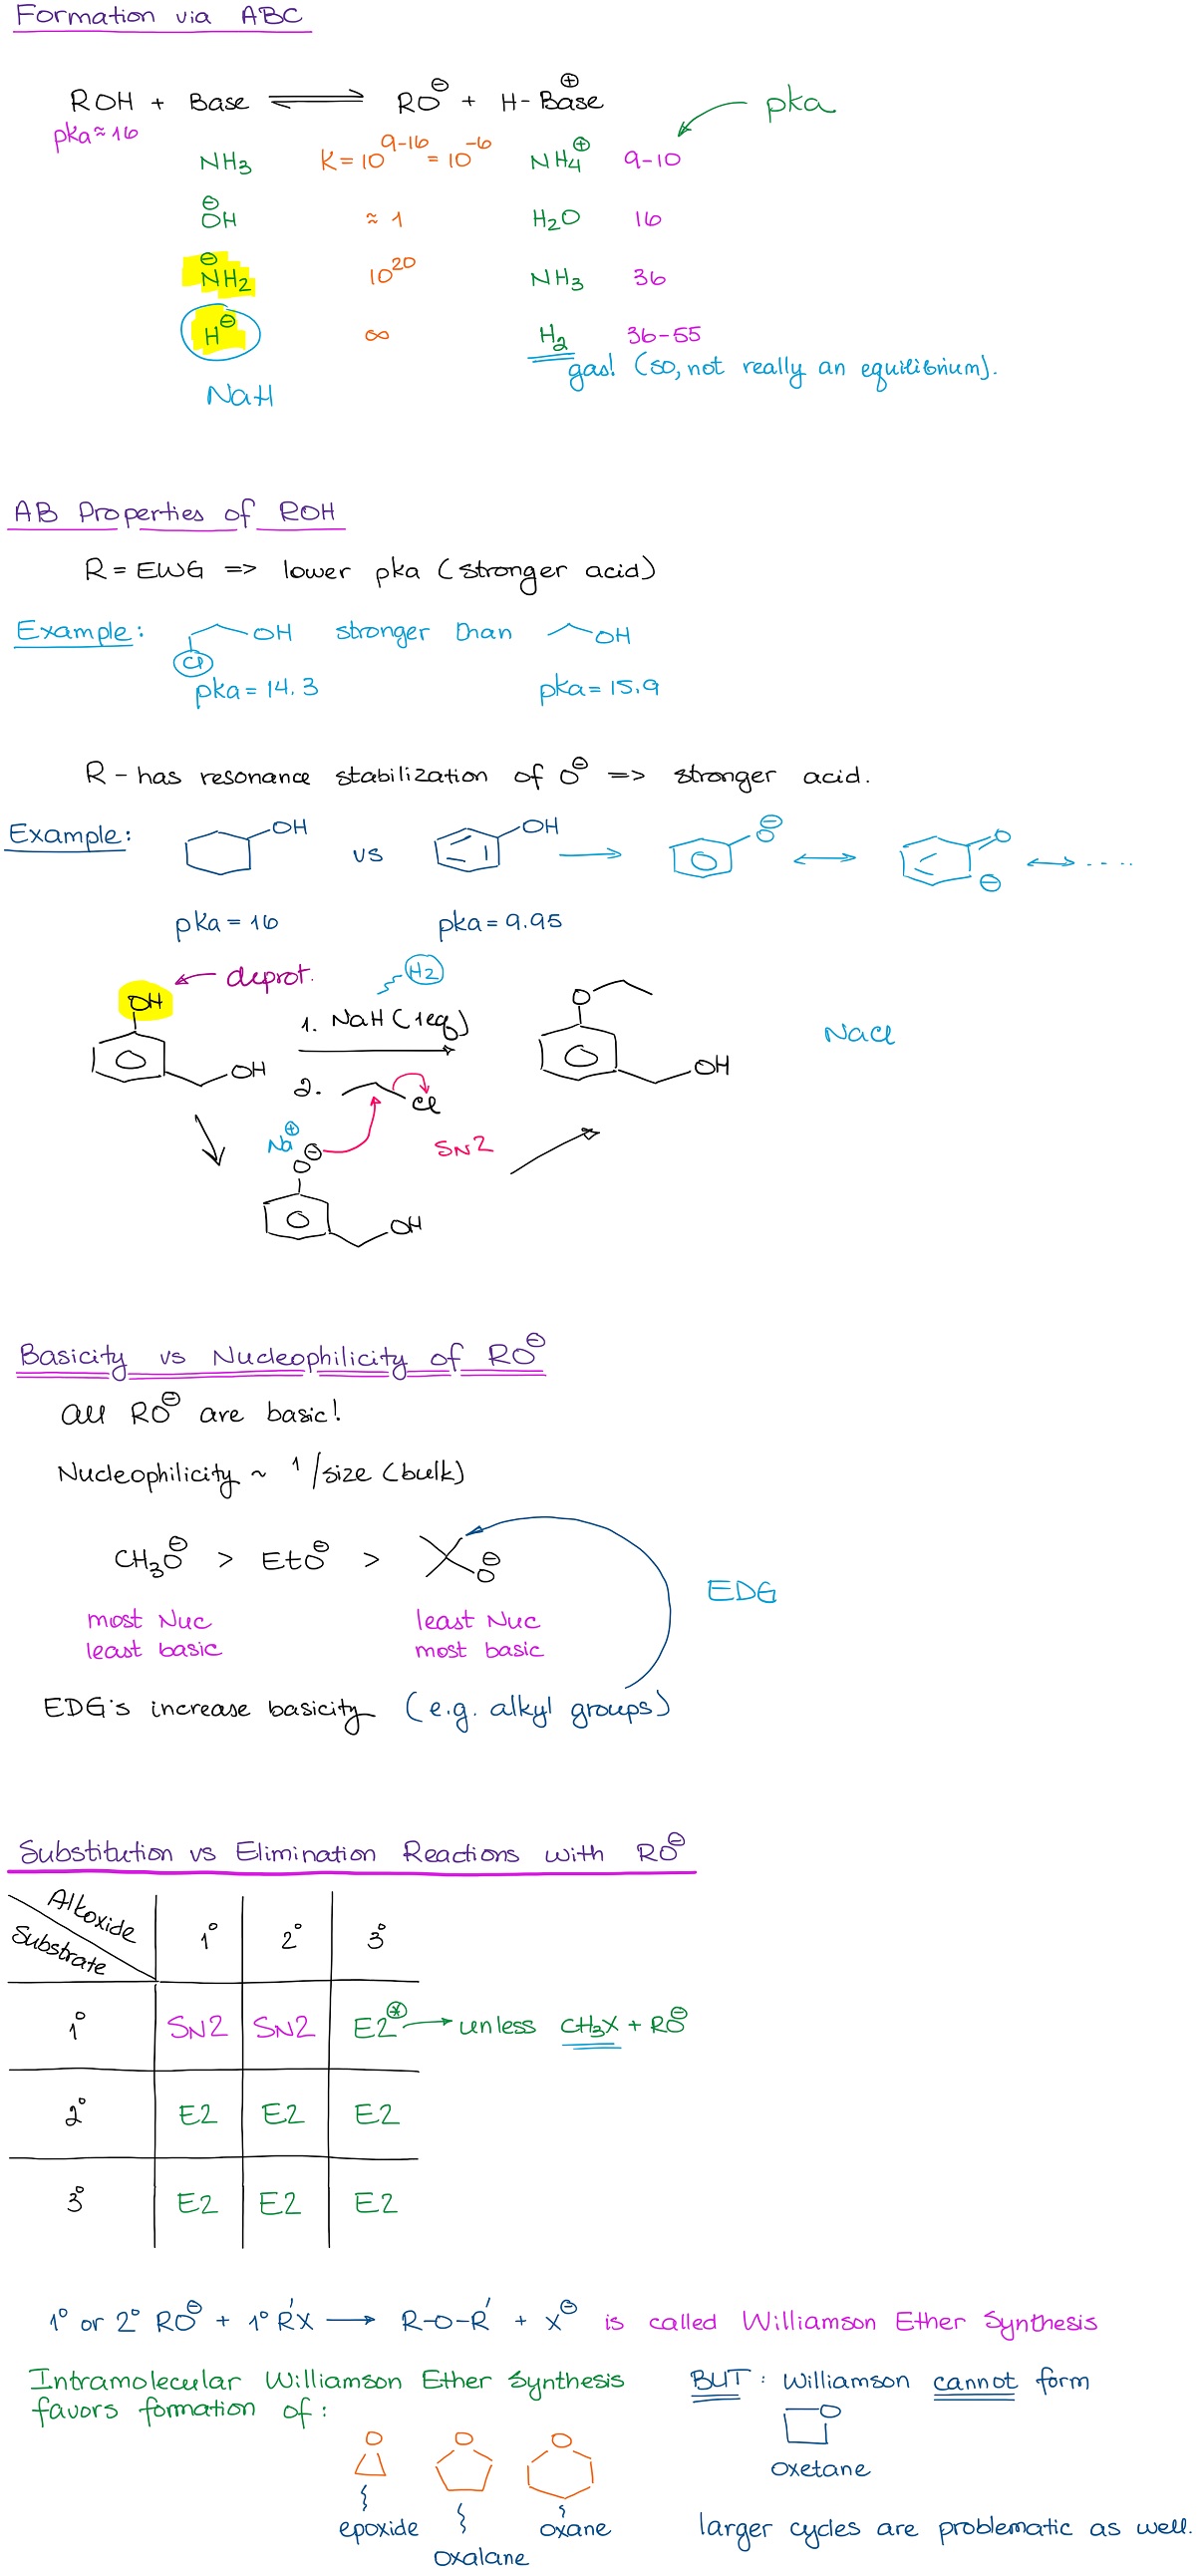 Formation via ABC
ROH + Base ⇌ RO⊖ + H-Base⊕
pka
pka≈16
NH3 K=10^9-16 = 10^-6 NH4⊕ 9-10
⊖OH ≈ 1 H2O 16
⊖NH2 10^20 NH3 36
H⊖ ∞ H2 36-55
gas! (so, not really an equilibrium).
NaH
AB Properties of ROH
R = EWG => lower pka (stronger acid)
Example: OH stronger than OH
Cl
pka= 14.3 pka= 15.9
R - has resonance stabilization of O⊖ => stronger acid.
Example: OH vs OH → O⊖ ↔ O ⊖ ↔ .....
pka = 16 pka= 9.95
OH ← deprot. H2
1. NaH (1eq) O NaCl
OH OH
2. Cl
Na⊕ O⊖ SN2
OH
Basicity vs Nucleophilicity of RO⊖
all RO⊖ are basic!
Nucleophilicity ~ 1/size (bulk)
CH3O⊖ > EtO⊖ > O⊖
EDG
most Nuc least Nuc
least basic most basic
EDG's increase basicity (e.g. alkyl groups)
Substitution vs Elimination Reactions with RO⊖
Alkoxide
Substrate 1° 2° 3°
1° SN2 SN2 E2* → unless CH3X + RO⊖
2° E2 E2 E2
3° E2 E2 E2
1° or 2° RO⊖ + 1° R'X → R-O-R' + X⊖ is called Williamson Ether Synthesis
Intramolecular Williamson Ether Synthesis
favors formation of:
O O O
epoxide oxalane oxane
BUT: Williamson cannot form
O
oxetane
larger cycles are problematic as well.